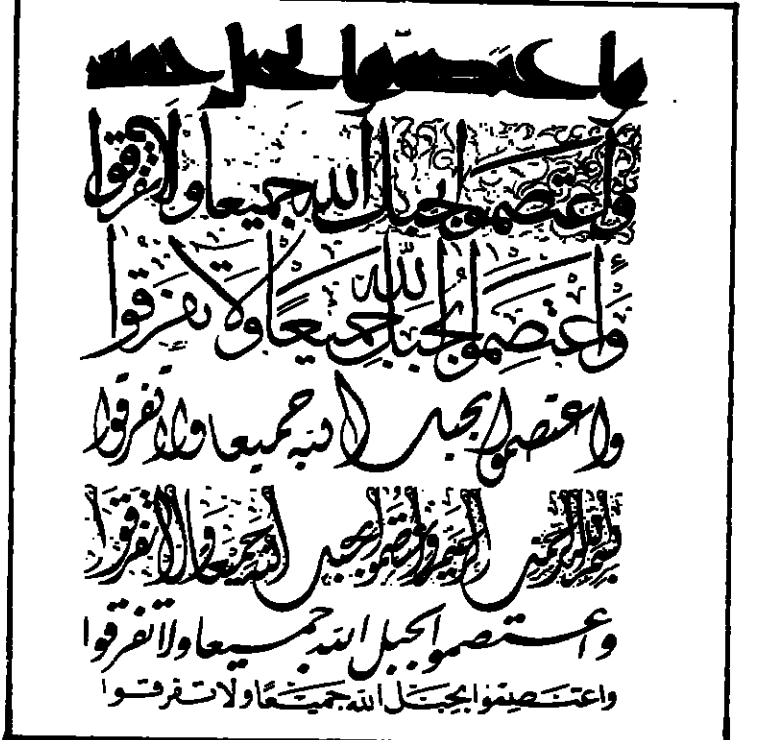 واعتصموا بحبل
واعتصموا بحبل الله جميعا ولا تفرقوا
وَاعتصموا بحبل الله جميعًا ولا تفرقوا
واعتصموا بحبل الله جميعا ولا تفرقوا
بسم الله الرحمن الرحيم واعتصموا بحبل الله جميعا ولا تفرقوا
واعتصموا بحبل الله جميعا ولا تفرقوا
واعتصموا بحبل الله جميعًا ولا تفرقوا